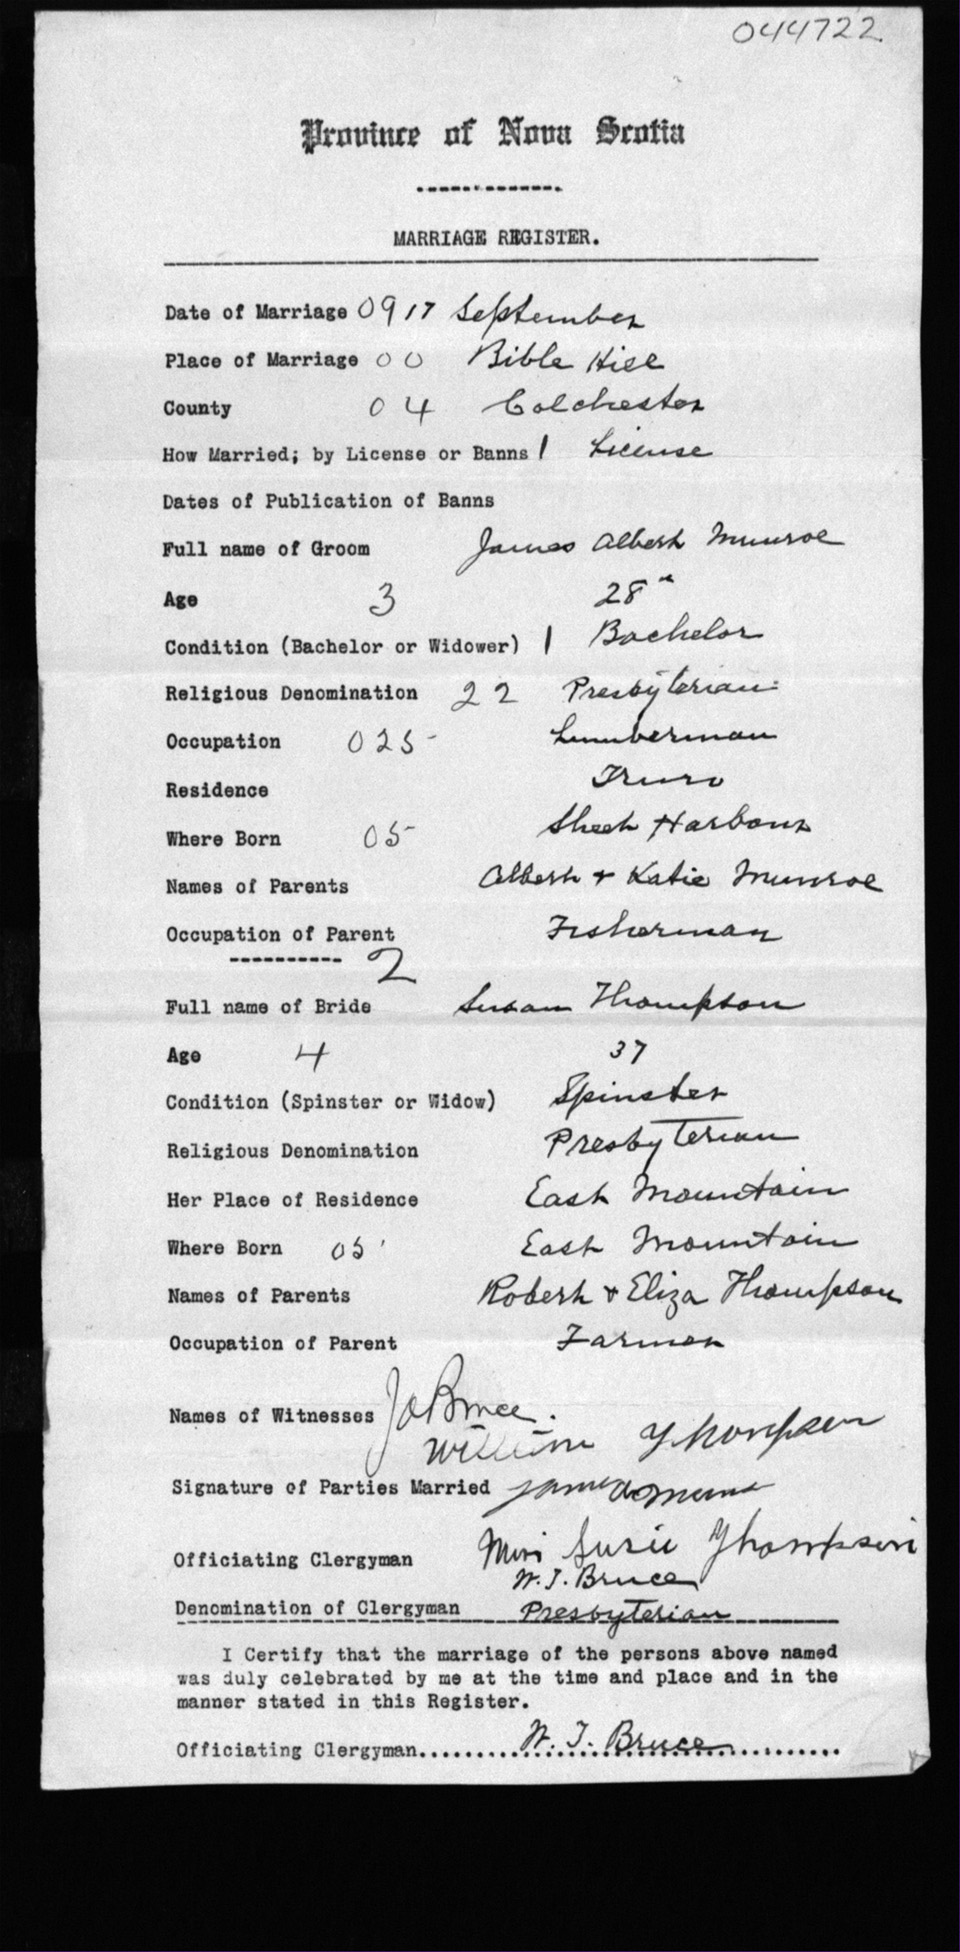 044722
Province of Nova Scotia
MARRIAGE REGISTER.
Date of Marriage 09 17 September
Place of Marriage 00 Bible Hill
County 04 Colchester
How Married; by License or Banns 1 License
Dates of Publication of Banns
Full name of Groom James Albert Munroe
Age 3 28
Condition (Bachelor or Widower) 1 Bachelor
Religious Denomination 22 Presbyterian
Occupation 025 Lumberman
Residence Truro
Where Born 05 Sheet Harbour
Names of Parents Albert + Katie Munroe
Occupation of Parent Fisherman
2
Full name of Bride Susan Thompson
Age 4 37
Condition (Spinster or Widow) Spinster
Religious Denomination Presbyterian
Her Place of Residence East Mountain
Where Born 05 East Mountain
Names of Parents Robert + Eliza Thompson
Occupation of Parent Farmer
Names of Witnesses Bruce.
William Thompson
Signature of Parties Married James A
Miss Susie Thompson
Officiating Clergyman W. J. Bruce
Denomination of Clergyman Presbyterian
I Certify that the marriage of the persons above named
was duly celebrated by me at the time and place and in the
manner stated in this Register.
Officiating Clergyman........W. J. Bruce........